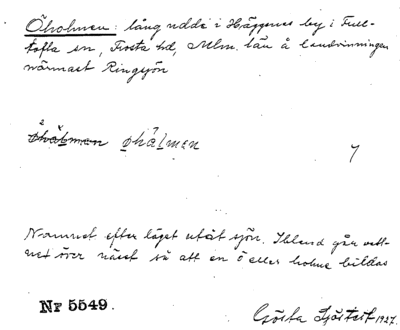 Öholmen: lång udde i Häggenes by i Full-
tofta sn, Frosta hd, Mlm. län å landvinningen
närmast Ringsjön
øhålmen
7
Namnet efter läget utåt sjön. Ibland går vatt-
net över näset så att en ö eller holme bildas
Nr 5549.
Gösta Sjöstedt 1927.